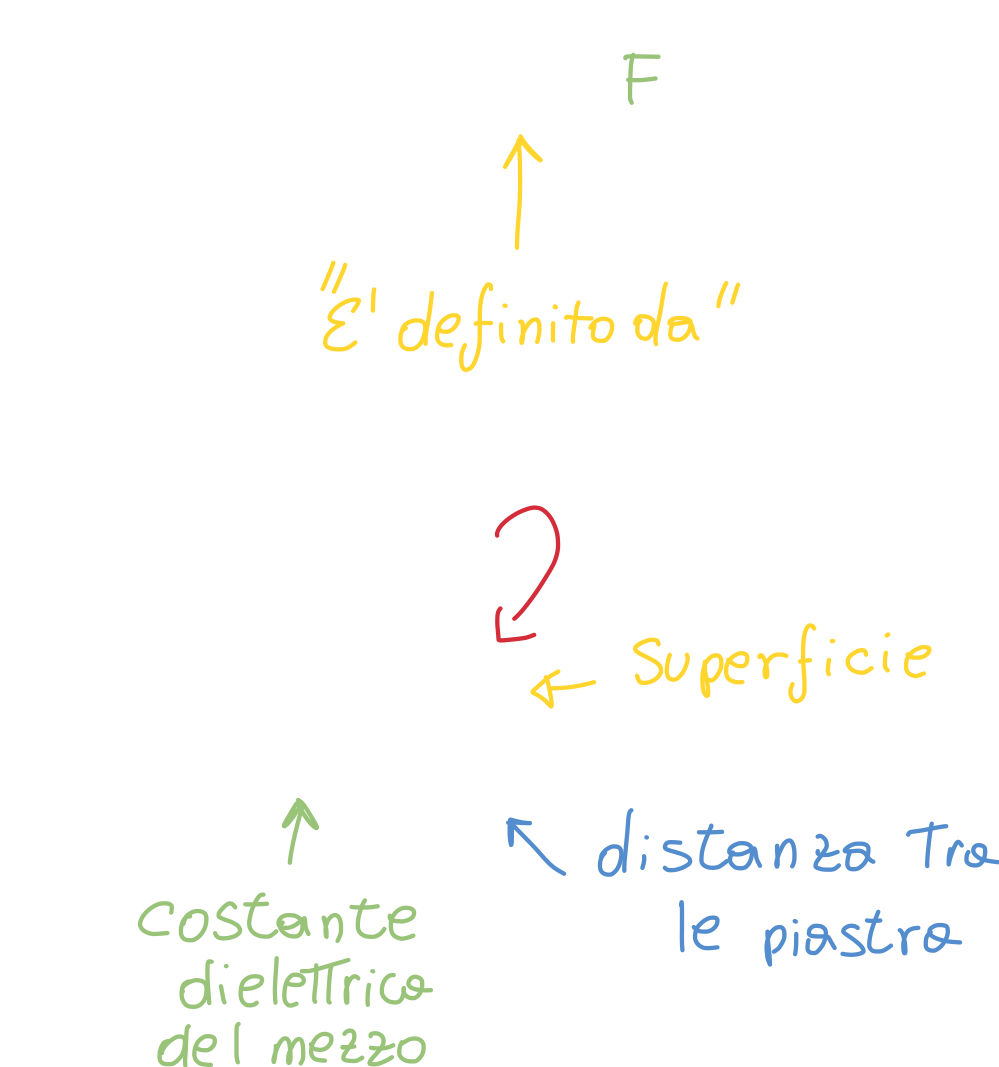 F
"E' definito da"
Superficie
distanza Tra
le piastra
Costante
dielettrica
del mezzo